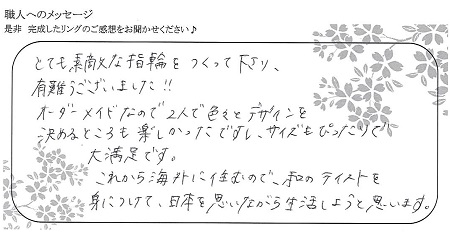 職人へのメッセージ
是非 完成したリングのご感想をお聞かせください♪
とても素敵な指輪をつくって下さり、
有難うございました!!
オーダーメイドなので2人で色々とデザインを
決めるところも楽しかったですし、サイズもぴったりで
大満足です。
これから海外に住むので、和のテイストを
身につけて、日本を思いながら生活しようと思います。